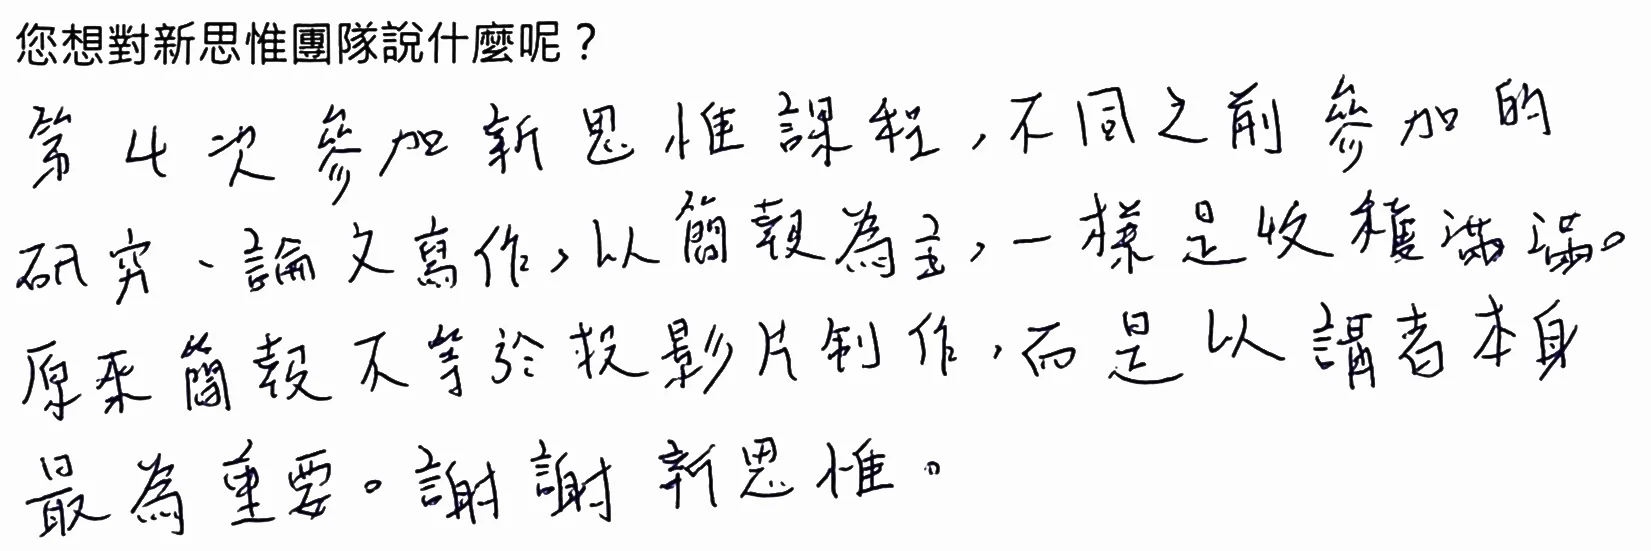 您想對新思惟團隊說什麼呢？
第4次參加新思惟課程，不同之前參加的
研究、論文寫作，以簡報為主，一樣是收穫滿滿。
原來簡報不等於投影片制作，而是以講者本身
最為重要。謝謝新思惟。